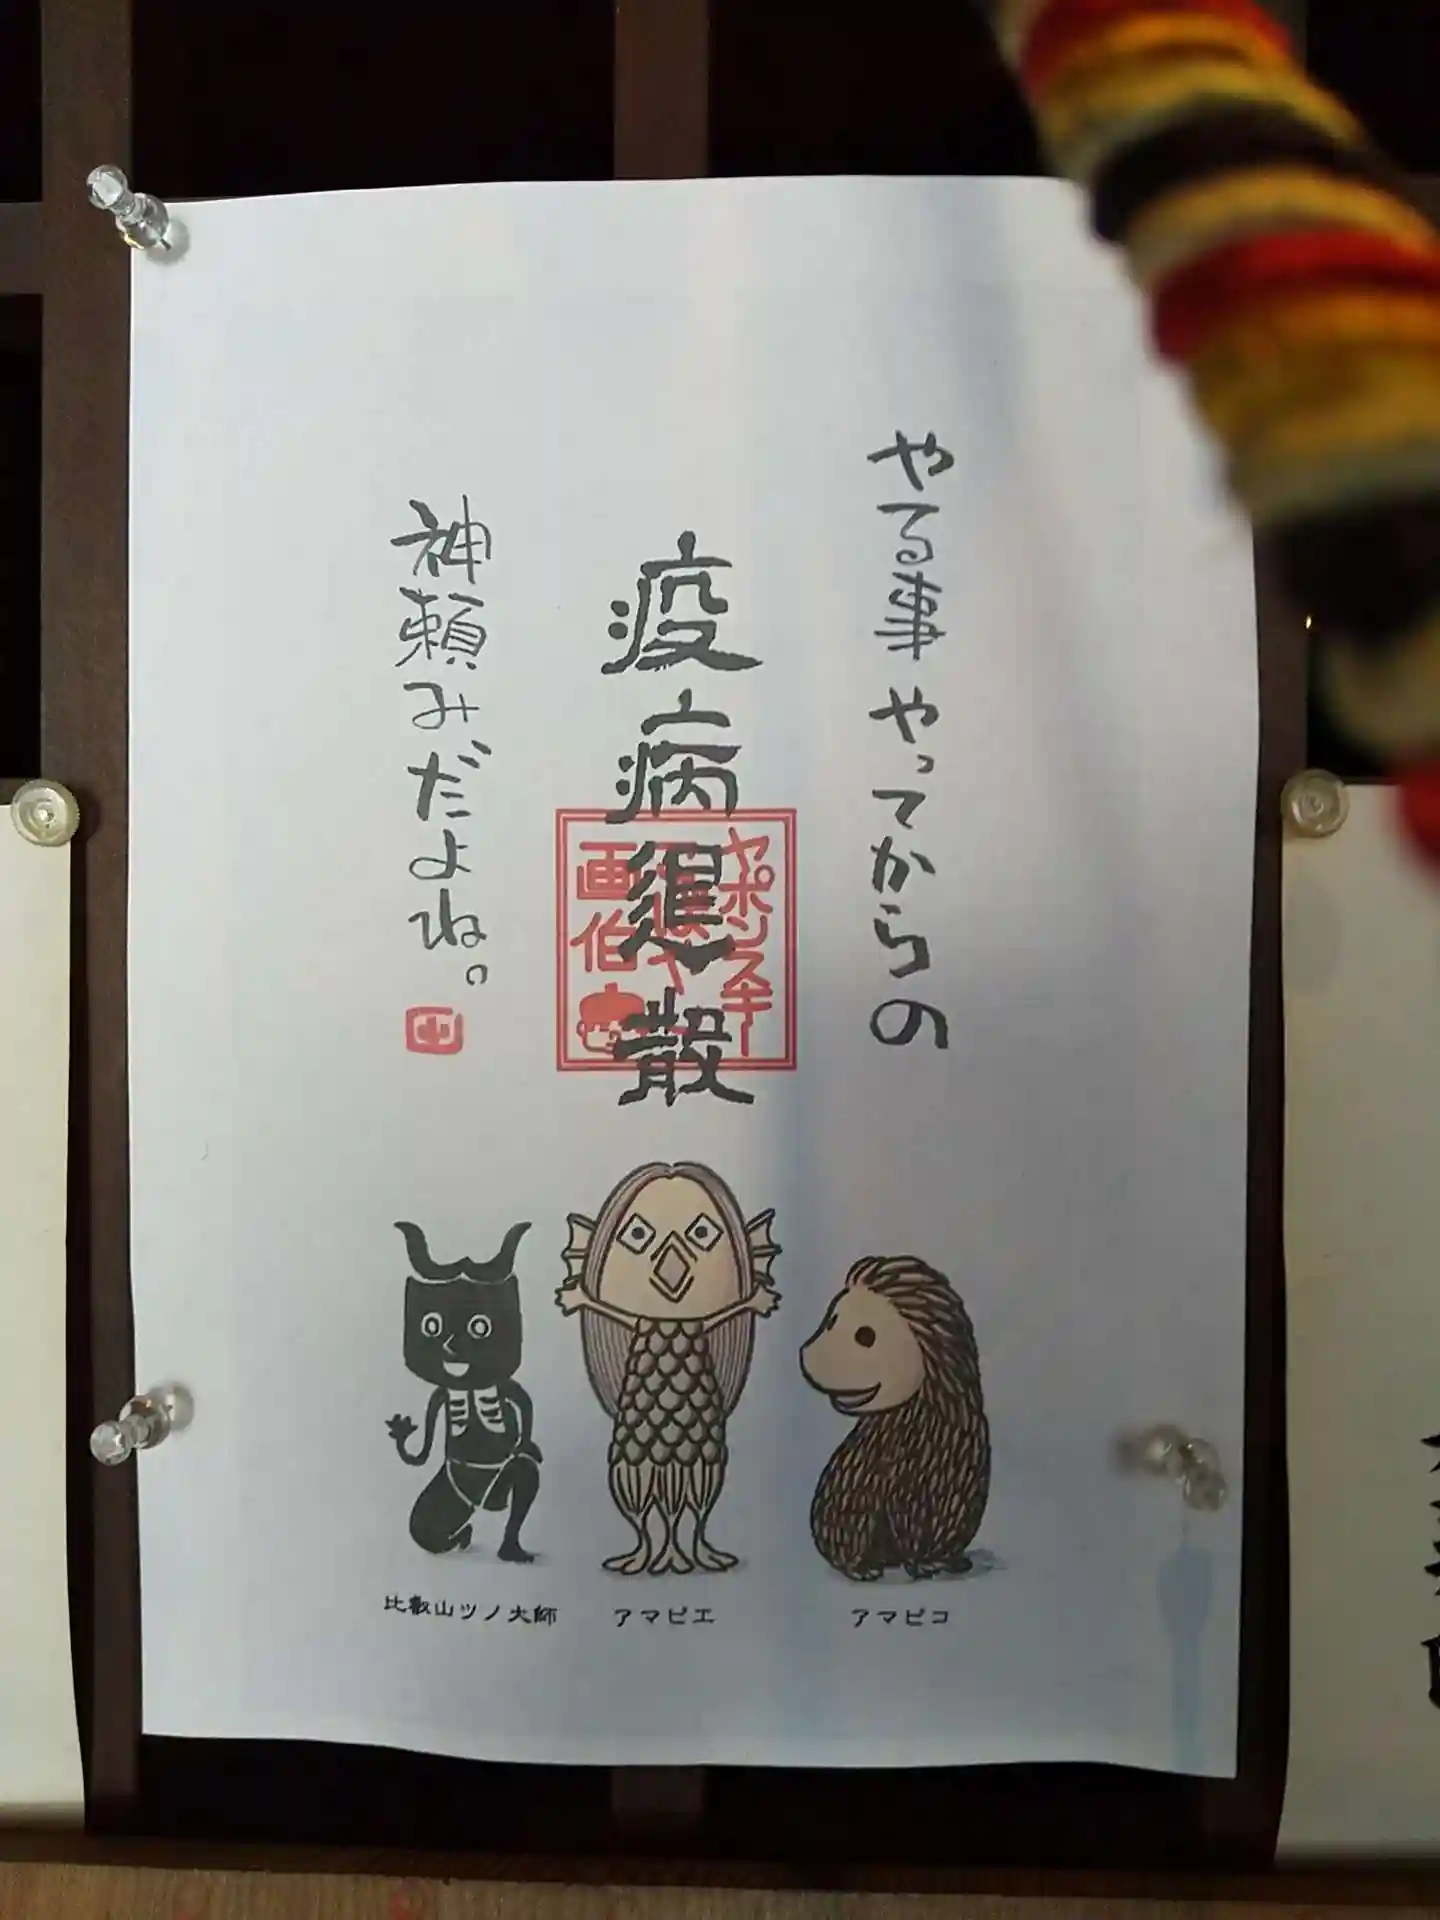 やる事 やってからの
疫病退散
神頼みだよね。
ヤポンスキー
画伯
比叡山ツノ大師
アマビエ
アマビコ